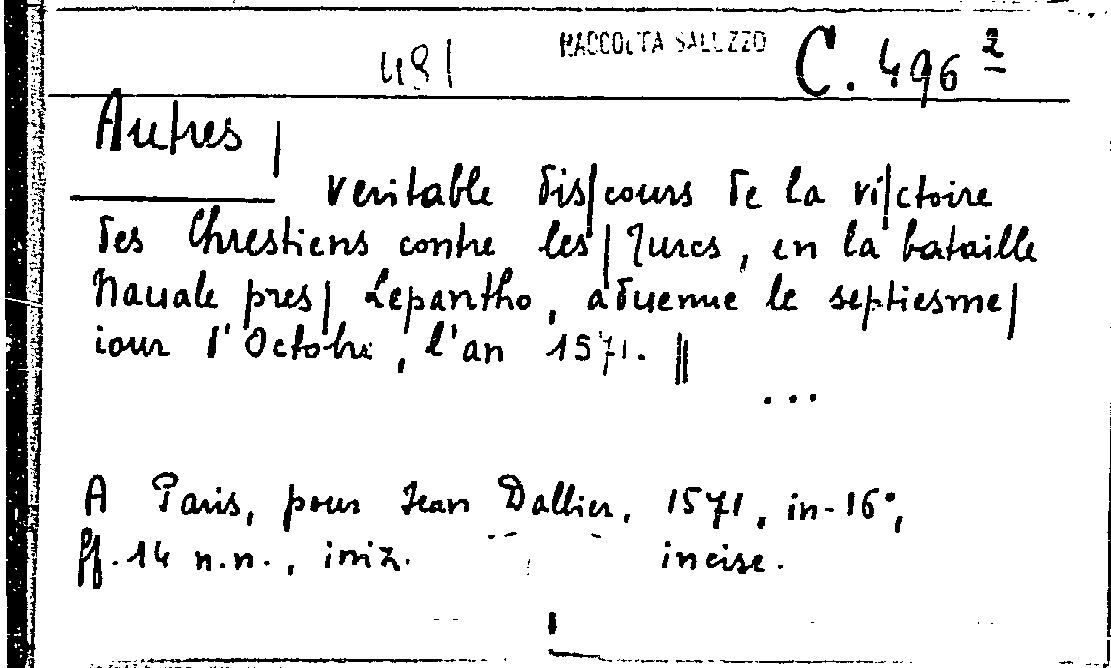 481 RACCOLTA SALUZZO C. 496²
Autres |
veritable dis|cours de la vi|ctoire
des Chrestiens contre les | Turcs, en la bataille
Nauale pres| Lepantho, aduenue le septiesme|
iour d'Octobre, l'an 1571. ||
...
A Paris, pour Jean Dallier, 1571, in-16°,
ff. 14 n.n., iniz. incise.